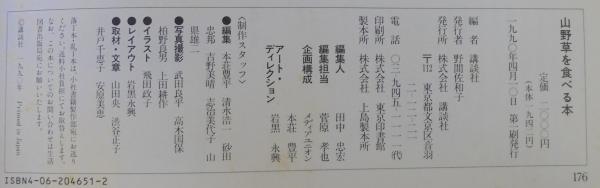 山野草を食べる本
定価 二〇〇〇円
(本体 一九四二円)
一九九〇年四月一〇日 第一刷発行
編者 講談社
発行者 野間佐和子
発行所 株式会社 講談社
〒112 東京都文京区音羽
二-一二-二一
電話 〇三-九四五-一一一一代
印刷所 株式会社 東京印書館
製本所 株式会社 上島製本所
編集人 田中 忠宏
編集担当 菅原 孝也
企画構成 メディアユニオン
本荘 豊平
アート・
ディレクション 岩黒 永興
〈制作スタッフ〉
●編集 本荘豊平 清水浩一 砂田
忠邦 吉野美晴 志治美代子 山
県雄二
●写真撮影 武田良平 高木国保
柏野良男 上田耕作
●イラスト 飛田政子
●レイアウト 岩黒永興
●取材・文章 山田央 渋谷正子
井戸千恵子 安原美恵
落丁本・乱丁本は、小社書籍製作部宛にお送り
ください。送料小社負担にてお取替えします。
なお、この本についてのお問い合わせは生活
図書出版部宛にお願いいたします。
©講談社 一九九〇年 Printed in Japan
ISBN4-06-204651-2
176